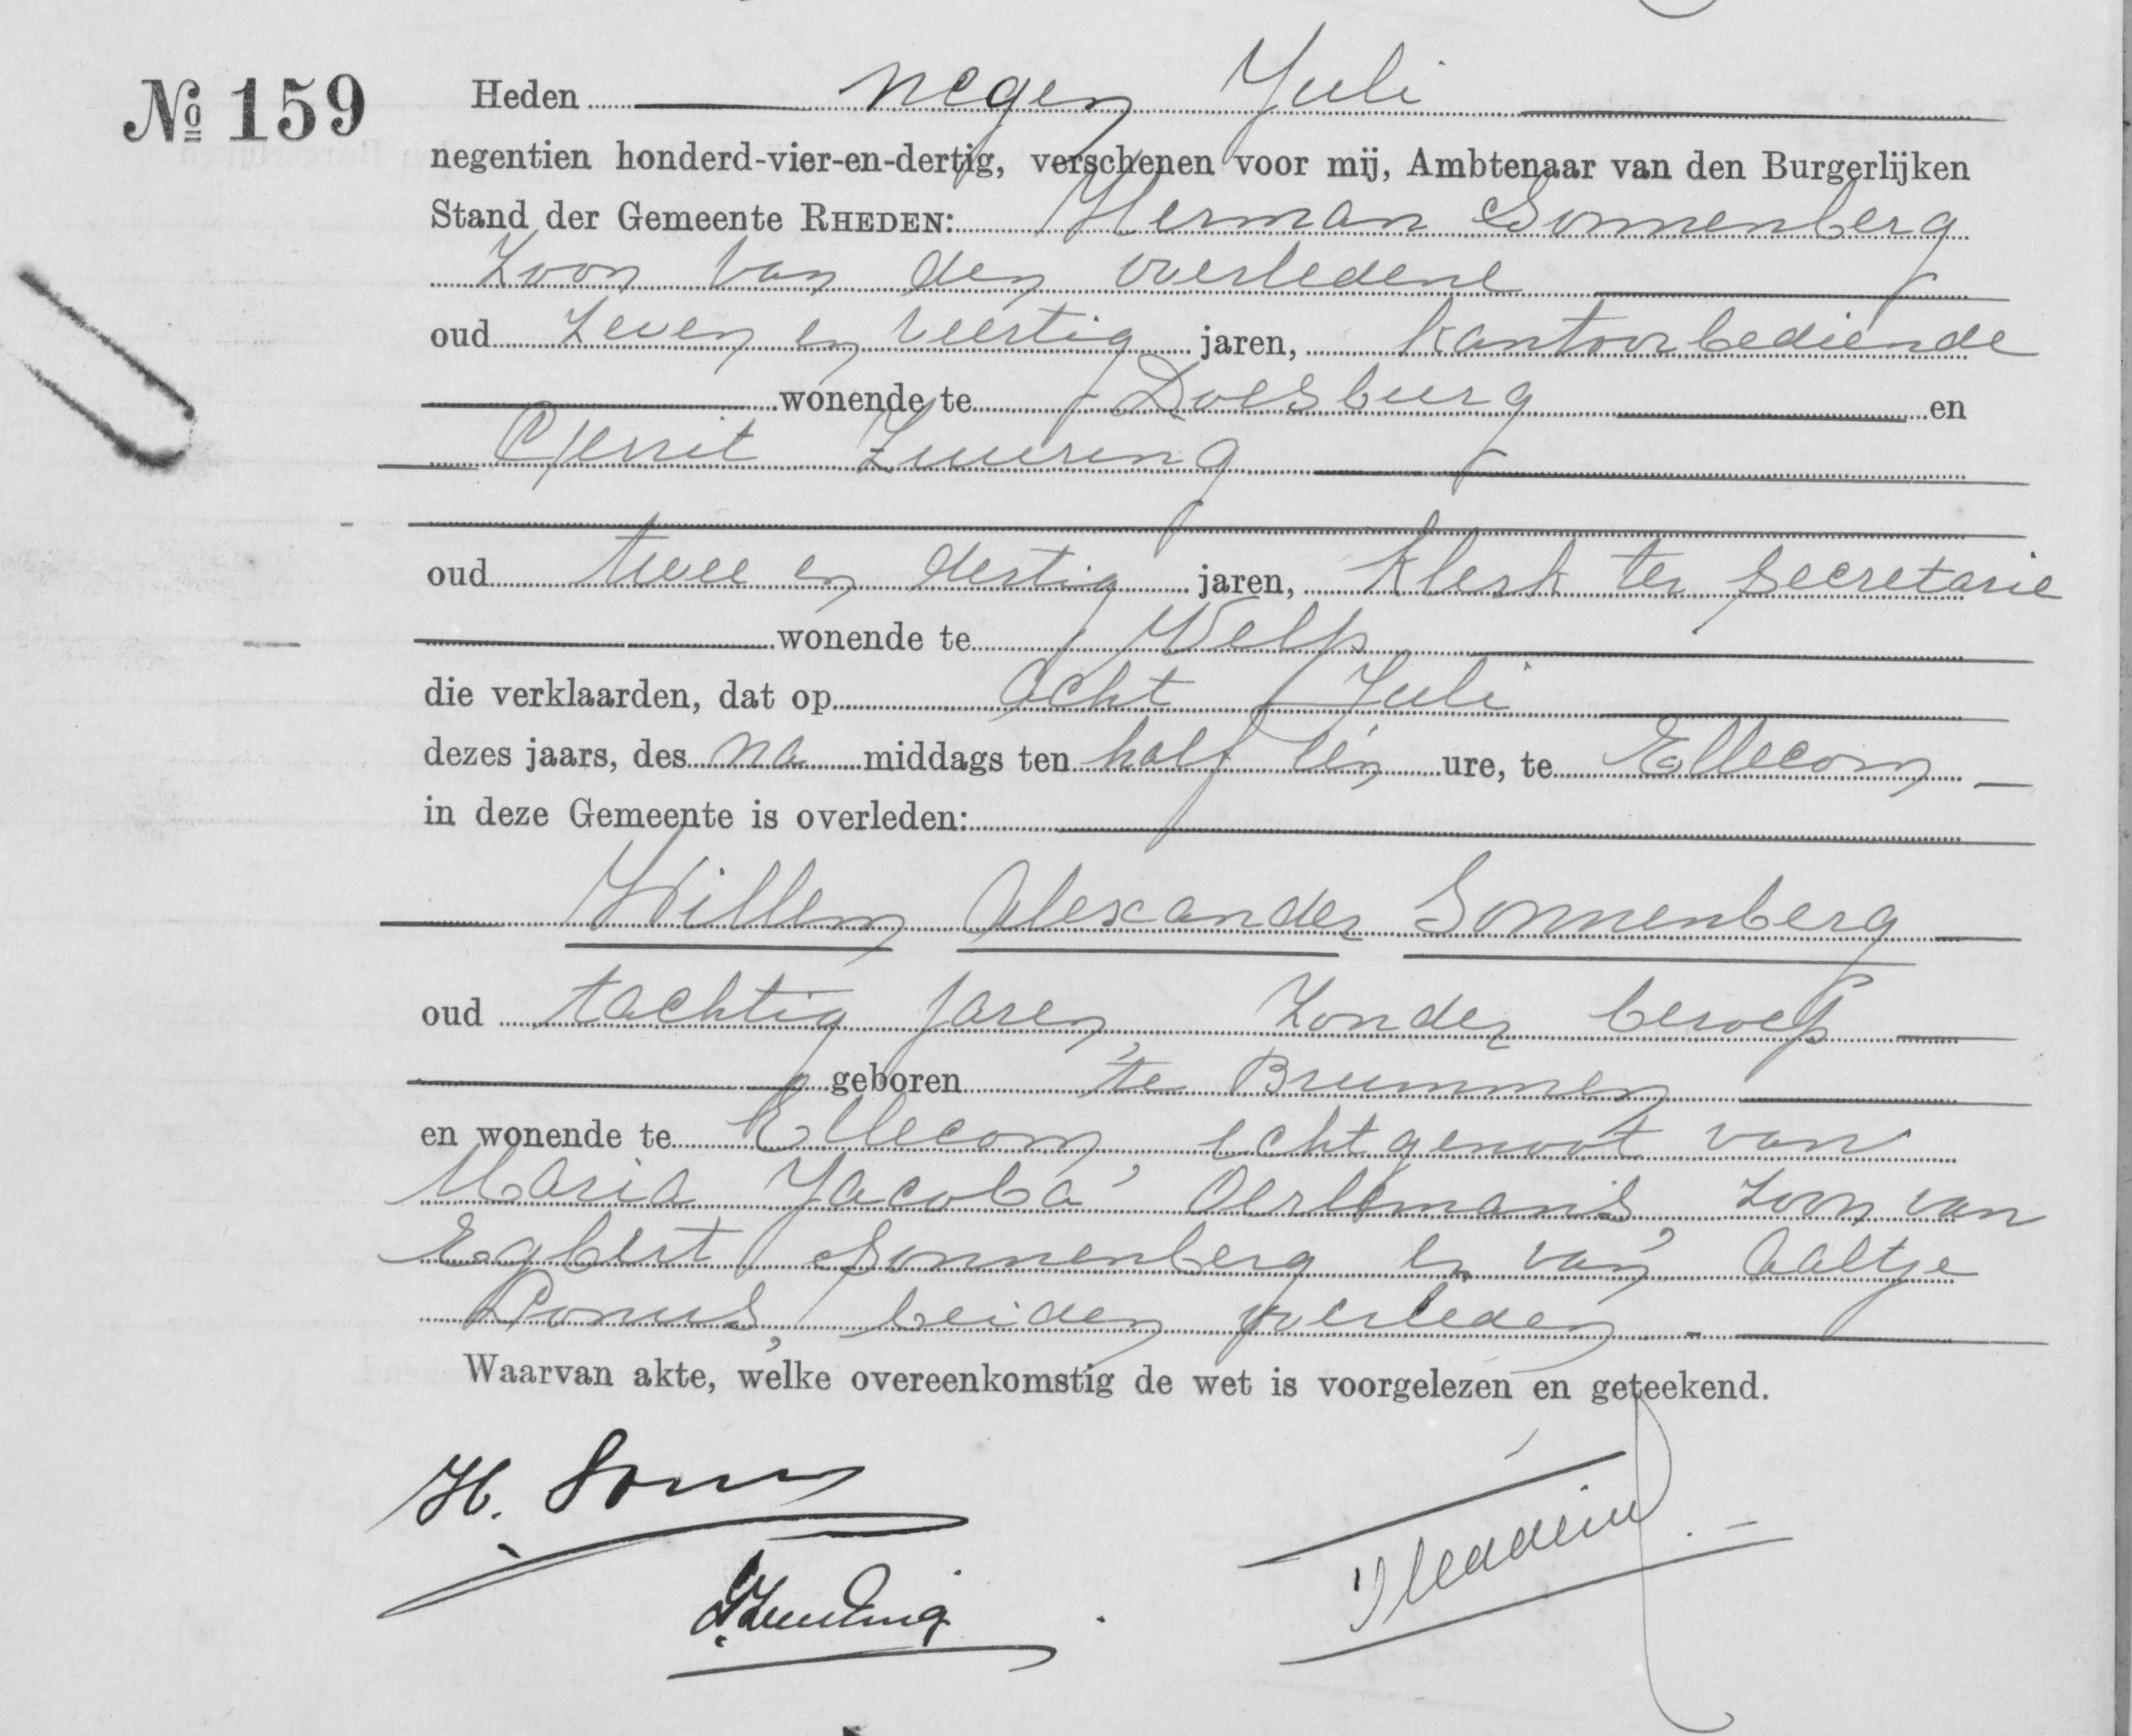 № 159
Heden negen Juli
negentien honderd-vier-en-dertig, verschenen voor mij, Ambtenaar van den Burgerlijken
Stand der Gemeente RHEDEN: Herman Sonnenberg
Zoon van den overledene
oud Zeven en veertig jaren, kantoorbediende
wonende te Doesburg en
Gerrit Zuuring
oud twee en dertig jaren, klerk ter secretarie
wonende te Velp
die verklaarden, dat op acht Juli
dezes jaars, des na middags ten half één ure, te Ellecom
in deze Gemeente is overleden:
Willem Alexander Sonnenberg
oud tachtig jaren, zonder beroep
geboren te Brummen
en wonende te Ellecom, echtgenoot van
Maria Jacoba Oerlemans, zoon van
Egbert Sonnenberg en van Aaltje
Donus, beiden overleden.
Waarvan akte, welke overeenkomstig de wet is voorgelezen en geteekend.
H. Sonn